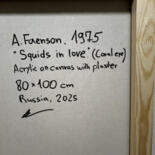 A. Faenson, 1975
"Squids in love" (Coralere)
Acrylic on canvas with plaster
80×100 cm
Russia, 2025